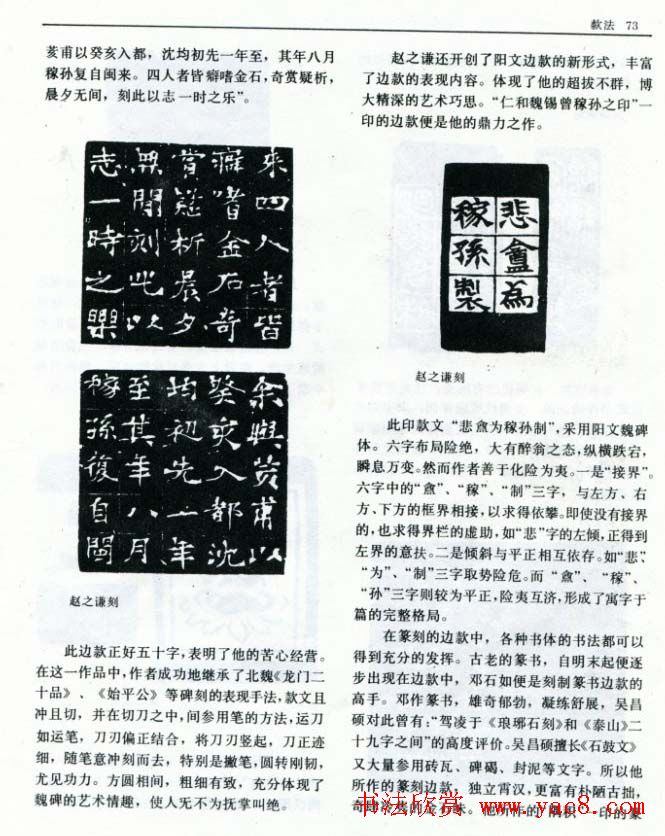 款法 73
菱甫以癸亥入都，沈均初先一年至，其年八月
稼孙复自闽来。四人者皆癖嗜金石，奇赏疑析，
晨夕无间，刻此以志一时之乐”。
来四人者皆
癖嗜金石奇
赏疑析晨夕
無間刻此以
志一時之樂
余與荄甫以
癸亥入都沈
均初先一年
至其年八月
稼孫復自閩
赵之谦刻
此边款正好五十字，表明了他的苦心经营。
在这一作品中，作者成功地继承了北魏《龙门二
十品》、《始平公》等碑刻的表现手法，款文且
冲且切，并在切刀之中，间参用笔的方法，运刀
如运笔，刀刃偏正结合，将刀刃竖起，刀正迹
细，随笔意冲刻而去，特别是撇笔，圆转刚韧，
尤见功力。方圆相间，粗细有致，充分体现了
魏碑的艺术情趣，使人无不为抚掌叫绝。
赵之谦还开创了阳文边款的新形式，丰富
了边款的表现内容。体现了他的超拔不群，博
大精深的艺术巧思。“仁和魏锡曾稼孙之印”一
印的边款便是他的鼎力之作。
悲盦為
稼孫製
赵之谦刻
此印款文“悲盦为稼孙制”，采用阳文魏碑
体。六字布局险绝，大有醉翁之态，纵横跌宕，
瞬息万变。然而作者善于化险为夷。一是“接界”。
六字中的“盦”、“稼”、“制”三字，与左方、右
方、下方的框界相接，以求得依攀。即使没有接界
的，也求得界栏的虚助，如“悲”字的左倾，正得到
左界的意扶。二是倾斜与平正相互依存。如“悲”、
“为”、“制”三字取势险危。而“盦”、“稼”、
“孙”三字则较为平正，险夷互济，形成了寓字于
篇的完整格局。
在篆刻的边款中，各种书体的书法都可以
得到充分的发挥。古老的篆书，自明末起便逐
步出现在边款中，邓石如便是刻制篆书边款的
高手。邓作篆书，雄奇郁勃，凝练舒展，吴昌
硕对此曾有：“驾凌于《琅琊石刻》和《泰山》二
十九字之间”的高度评价。吴昌硕擅长《石鼓文》
又大量参用砖瓦、碑碣、封泥等文字。所以他
所作的篆刻边款，独立霄汉，更富有朴陋古拙，
书法欣赏 www.yac8.com